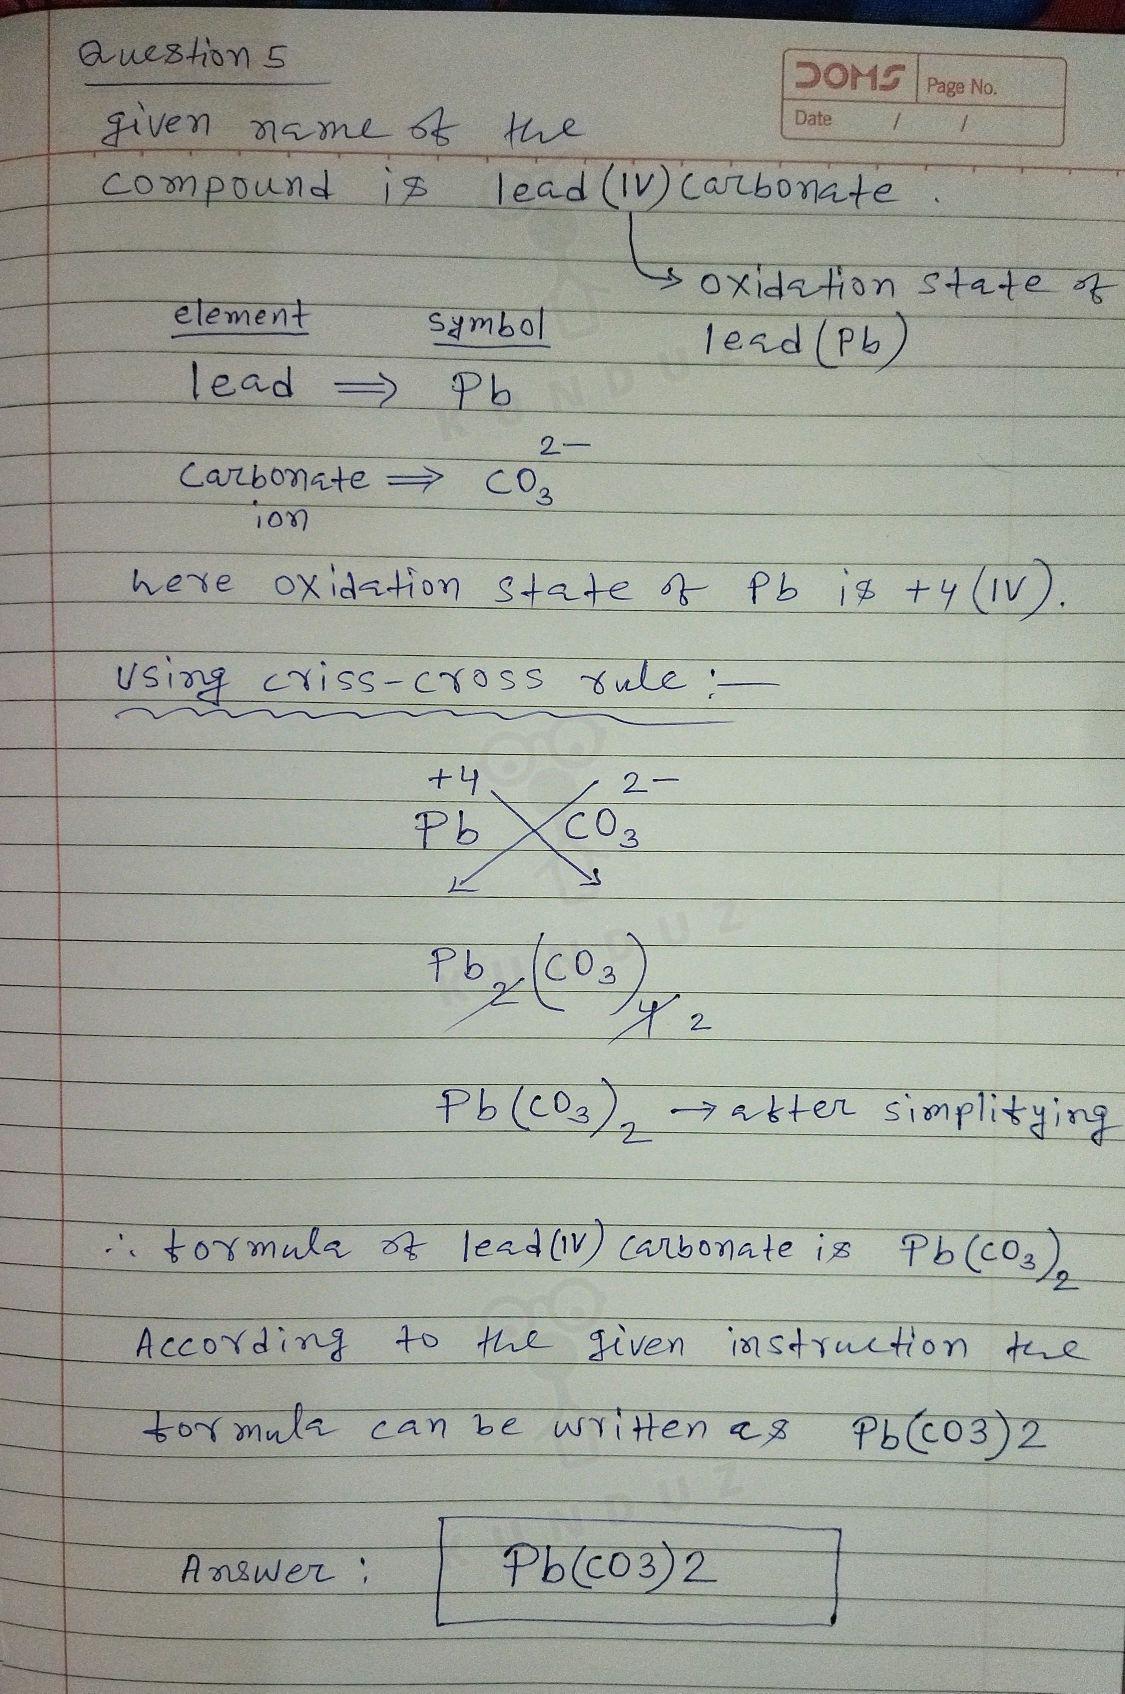 Question 5
DOMS
Page No.
Date / /
given name of the
compound is lead(IV) carbonate.
→ oxidation state of
lead(Pb)
element symbol
lead ⇒ Pb
carbonate ion ⇒ CO₃²⁻
here oxidation state of Pb is +4(IV).
Using criss-cross rule :—
+4 2−
Pb CO₃
Pb₂(CO₃)₄ 2
Pb(CO₃)₂ → after simplifying
∴ formula of lead(IV) carbonate is Pb(CO₃)₂
According to the given instruction the
formula can be written as Pb(CO3)2
Answer : Pb(CO3)2
KUNDUZ
KUNDUZ
KUNDUZ